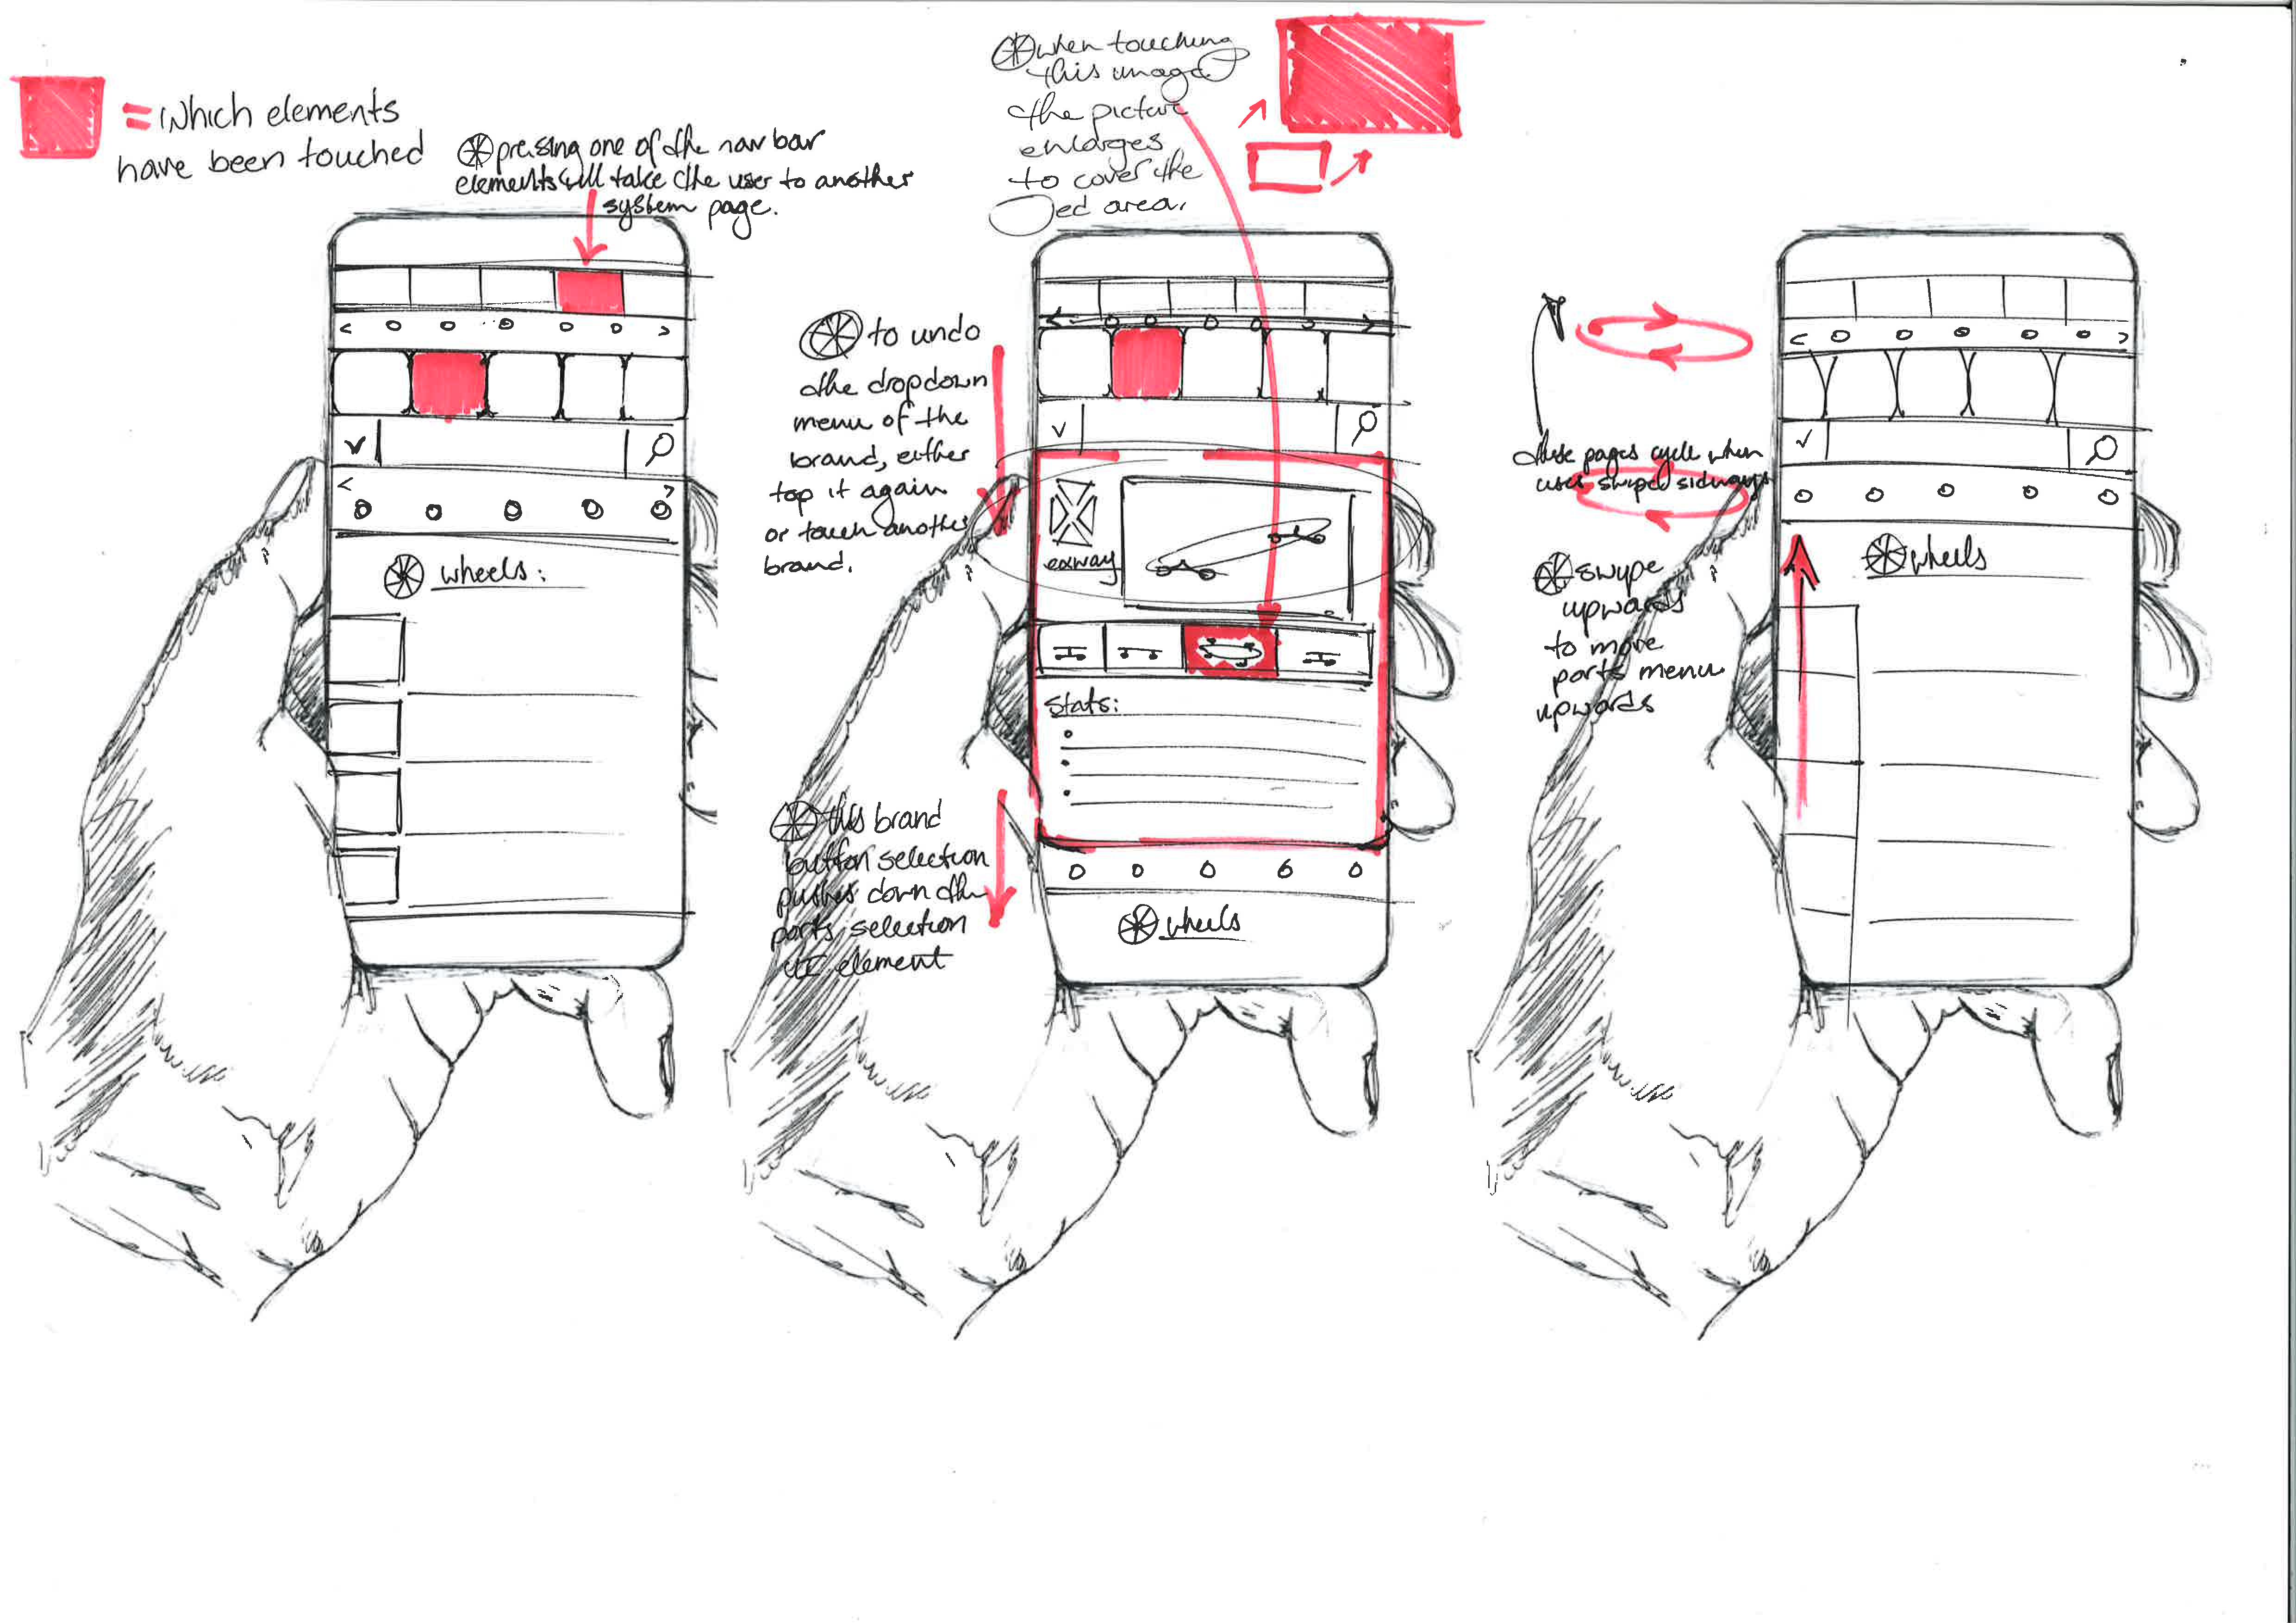 = which elements
have been touched
pressing one of the nav bar
elements will take the user to another
system page.
wheels:
when touching
this image
the picture
enlarges
to cover the
red area.
to undo
the dropdown
menu of the
brand, either
tap it again
or touch another
brand.
this brand
button selection
pushes down the
parts selection
UI element
exway
Stats:
wheels
these pages cycle when
user swipes sideways
swype
upwards
to move
parts menu
upwards
wheels